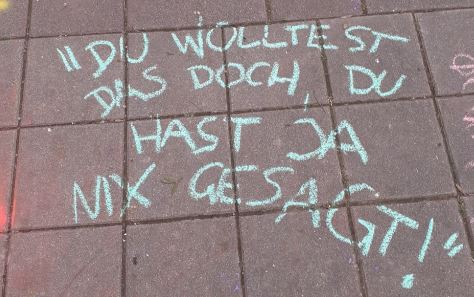 "DU WOLLTEST
DAS DOCH, DU
HAST JA
NIX GESAGT!"